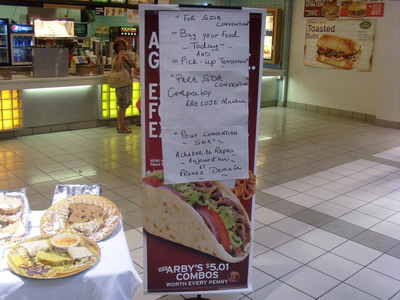 "For SDA
CONVENTION"
"Buy your food
Today"
AND
"Pick-up Tomorrow"
"PARA SDA
CONVENTION"
Compra hoy
RRECOJE Mañana
"Pour CONVENTION
~ SDA" ~
Acheter le Repas
~ Aujourd'hui ~
ET
Prenez Demain
ARBY'S $5.01
COMBOS
WORTH EVERY PENNY
Toasted
Subs
pepsi